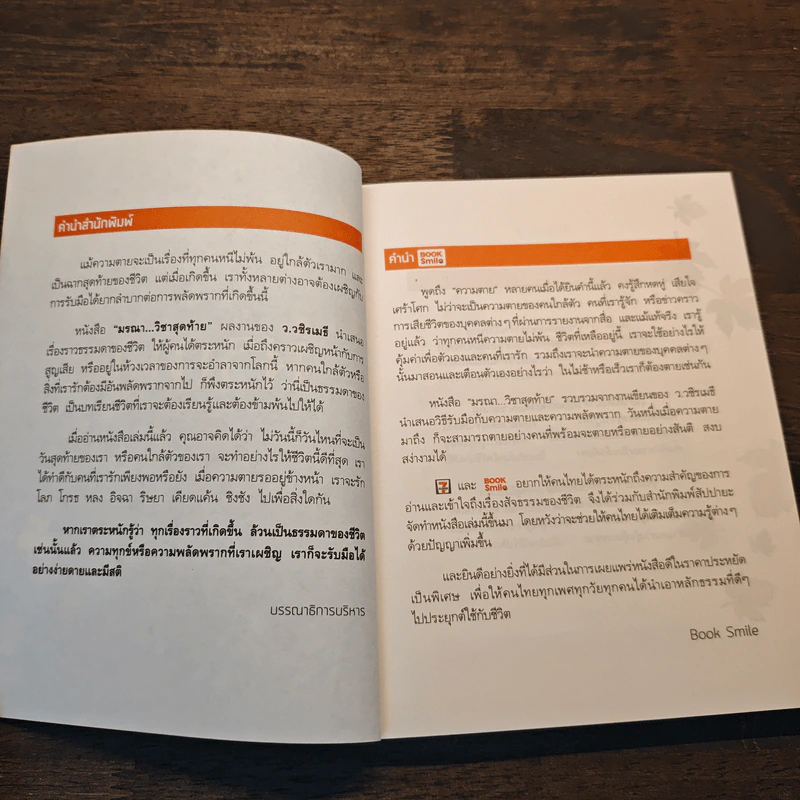 คำนำสำนักพิมพ์
แม้ความตายจะเป็นเรื่องที่ทุกคนหนีไม่พ้น อยู่ใกล้ตัวเรามาก และ
เป็นฉากสุดท้ายของชีวิต แต่เมื่อเกิดขึ้น เราทั้งหลายต่างอาจต้องเผชิญกับ
การรับมือได้ยากลำบากต่อการพลัดพรากที่เกิดขึ้นนี้
หนังสือ “มรณา...วิชาสุดท้าย” ผลงานของ ว.วชิรเมธี นำเสนอ
เรื่องราวธรรมดาของชีวิต ให้ผู้คนได้ตระหนัก เมื่อถึงคราวเผชิญหน้ากับการ
สูญเสีย หรืออยู่ในห้วงเวลาของการจะอำลาจากโลกนี้ หากคนใกล้ตัวหรือ
สิ่งที่เรารักต้องมีอันพลัดพรากจากไป ก็พึงตระหนักไว้ ว่านี่เป็นธรรมดาของ
ชีวิต เป็นบทเรียนชีวิตที่เราจะต้องเรียนรู้และต้องข้ามพ้นไปให้ได้
เมื่ออ่านหนังสือเล่มนี้แล้ว คุณอาจคิดได้ว่า ไม่วันนี้ก็วันไหนที่จะเป็น
วันสุดท้ายของเรา หรือคนใกล้ตัวของเรา จะทำอย่างไรให้ชีวิตนี้ดีที่สุด เรา
ได้ทำดีกับคนที่เรารักเพียงพอหรือยัง เมื่อความตายรออยู่ข้างหน้า เราจะรัก
โลภ โกรธ หลง อิจฉา ริษยา เคียดแค้น ชิงชัง ไปเพื่อสิ่งใดกัน
หากเราตระหนักรู้ว่า ทุกเรื่องราวที่เกิดขึ้น ล้วนเป็นธรรมดาของชีวิต
เช่นนั้นแล้ว ความทุกข์หรือความพลัดพรากที่เราเผชิญ เราก็จะรับมือได้
อย่างง่ายดายและมีสติ
บรรณาธิการบริหาร
คำนำ BOOK Smile
พูดถึง “ความตาย” หลายคนเมื่อได้ยินคำนี้แล้ว คงรู้สึกหดหู่ เสียใจ
เศร้าโศก ไม่ว่าจะเป็นความตายของคนใกล้ตัว คนที่เรารู้จัก หรือข่าวคราว
การเสียชีวิตของบุคคลต่างๆที่ผ่านการรายงานจากสื่อ และแม้แท้จริง เรารู้
อยู่แล้ว ว่าทุกคนหนีความตายไม่พ้น ชีวิตที่เหลืออยู่นี้ เราจะใช้อย่างไรให้
คุ้มค่าเพื่อตัวเองและคนที่เรารัก รวมถึงเราจะนำความตายของบุคคลต่างๆ
นั้นมาสอนและเตือนตัวเองอย่างไรว่า ในไม่ช้าหรือเร็วเราก็ต้องตายเช่นกัน
หนังสือ “มรณา...วิชาสุดท้าย” รวบรวมจากงานเขียนของ ว.วชิรเมธี
นำเสนอวิธีรับมือกับความตายและความพลัดพราก วันหนึ่งเมื่อความตาย
มาถึง ก็จะสามารถตายอย่างคนที่พร้อมจะตายหรือตายอย่างสันติ สงบ
สง่างามได้
7 ELEVEN และ BOOK Smile อยากให้คนไทยได้ตระหนักถึงความสำคัญของการ
อ่านและเข้าใจถึงเรื่องสัจธรรมของชีวิต จึงได้ร่วมกับสำนักพิมพ์สัปปายะ
จัดทำหนังสือเล่มนี้ขึ้นมา โดยหวังว่าจะช่วยให้คนไทยได้เติมเต็มความรู้ต่างๆ
ด้วยปัญญาเพิ่มขึ้น
และยินดีอย่างยิ่งที่ได้มีส่วนในการเผยแพร่หนังสือดีในราคาประหยัด
เป็นพิเศษ เพื่อให้คนไทยทุกเพศทุกวัยทุกคนได้นำเอาหลักธรรมที่ดีๆ
ไปประยุกต์ใช้กับชีวิต
Book Smile